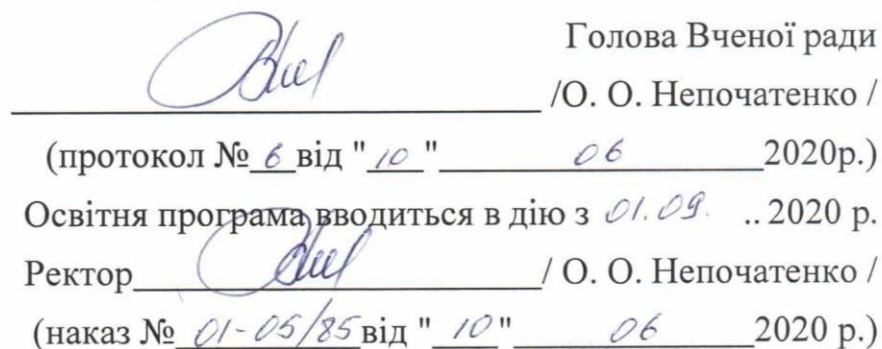 Голова Вченої ради
/О. О. Непочатенко /
(протокол № 6 від "10" 06 2020р.)
Освітня програма вводиться в дію з 01.09. .. 2020 р.
Ректор / О. О. Непочатенко /
(наказ № 01-05/85 від "10" 06 2020 р.)